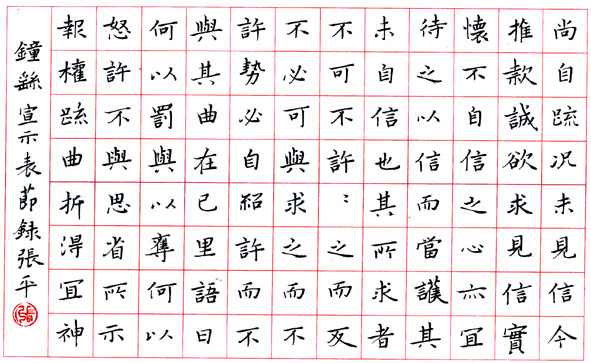 尚自䟽况未見信今
推款誠欲求見信實
懷不自信之心亦宜
待之以信而當護其
未自信也其所求者
不可不許：之而反
不必可與求之而不
許勢必自紹許而不
與其曲在已里語曰
何以罰與以奪何以
怒許不與思省所示
報權䟽曲折得宜神
鐘繇宣示表節録張平